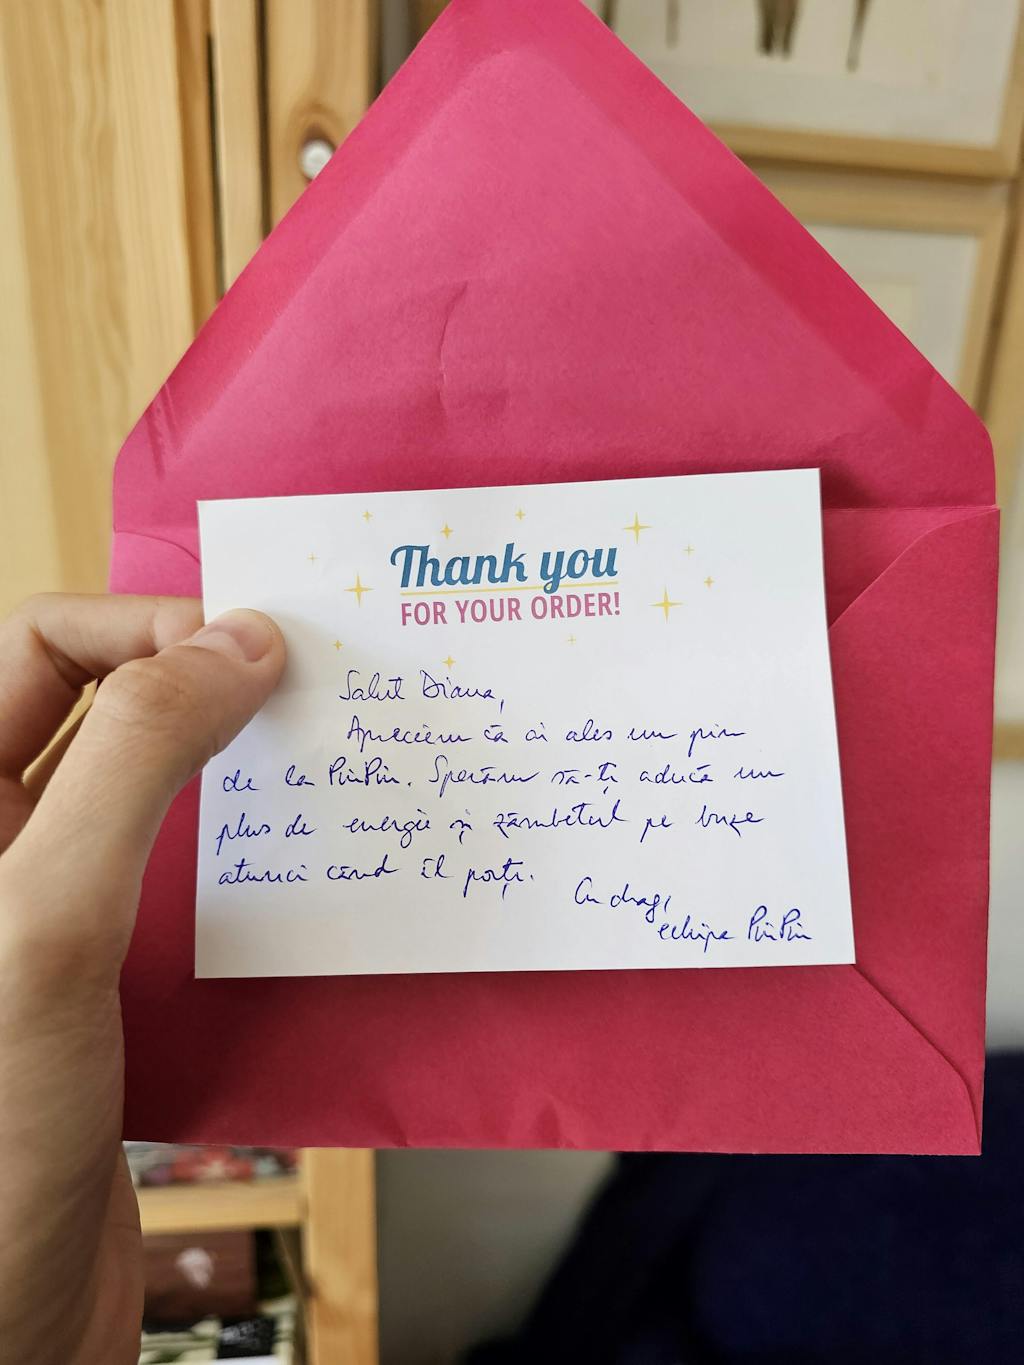 Thank you
FOR YOUR ORDER!
Salut Diana,
Apreciem că ai ales un pin
de la PinPin. Sperăm să-ți aducă un
plus de energie și zâmbetul pe buze
atunci când îl porți.
Cu drag,
echipa PinPin